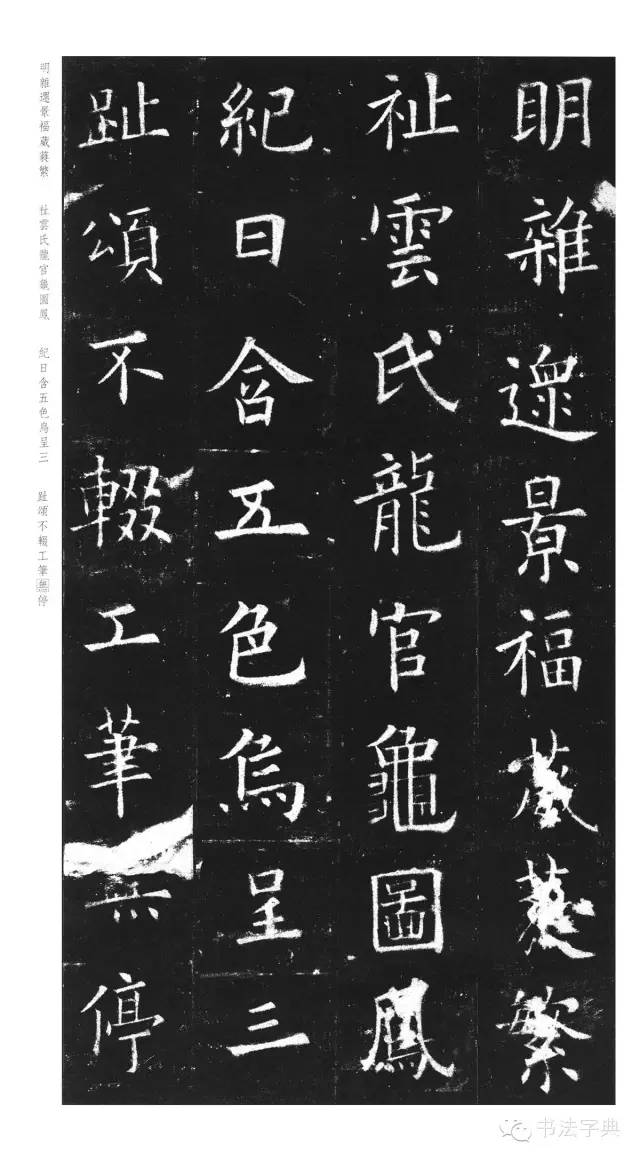 明雜遝景福葳蕤繁
祉雲氏龍官龜圖鳳
紀日含五色烏呈三
趾頌不輟工筆無停
明雜遝景福葳蕤繁 祉雲氏龍官龜圖鳳 紀日含五色烏呈三 趾頌不輟工筆無停
书法字典